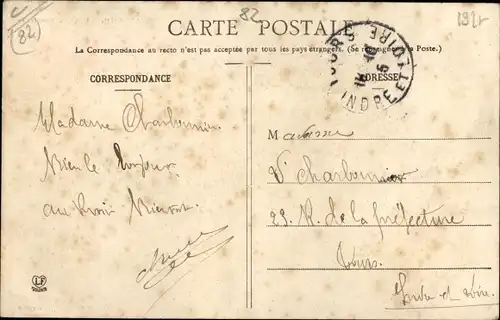 82
(82)
1921
CARTE POSTALE
La Correspondance au recto n'est pas acceptée par tous les pays étrangers. (Se renseigner à la Poste.)
CORRESPONDANCE
ADRESSE
TOURS
INDRE ET LOIRE
Madame Charbonnier
Bien le bonjour
au revoir Bientot
Madame
Vve Charbonnier
23. R. de la Préfecture
Tours.
Indre et Loire.
LF